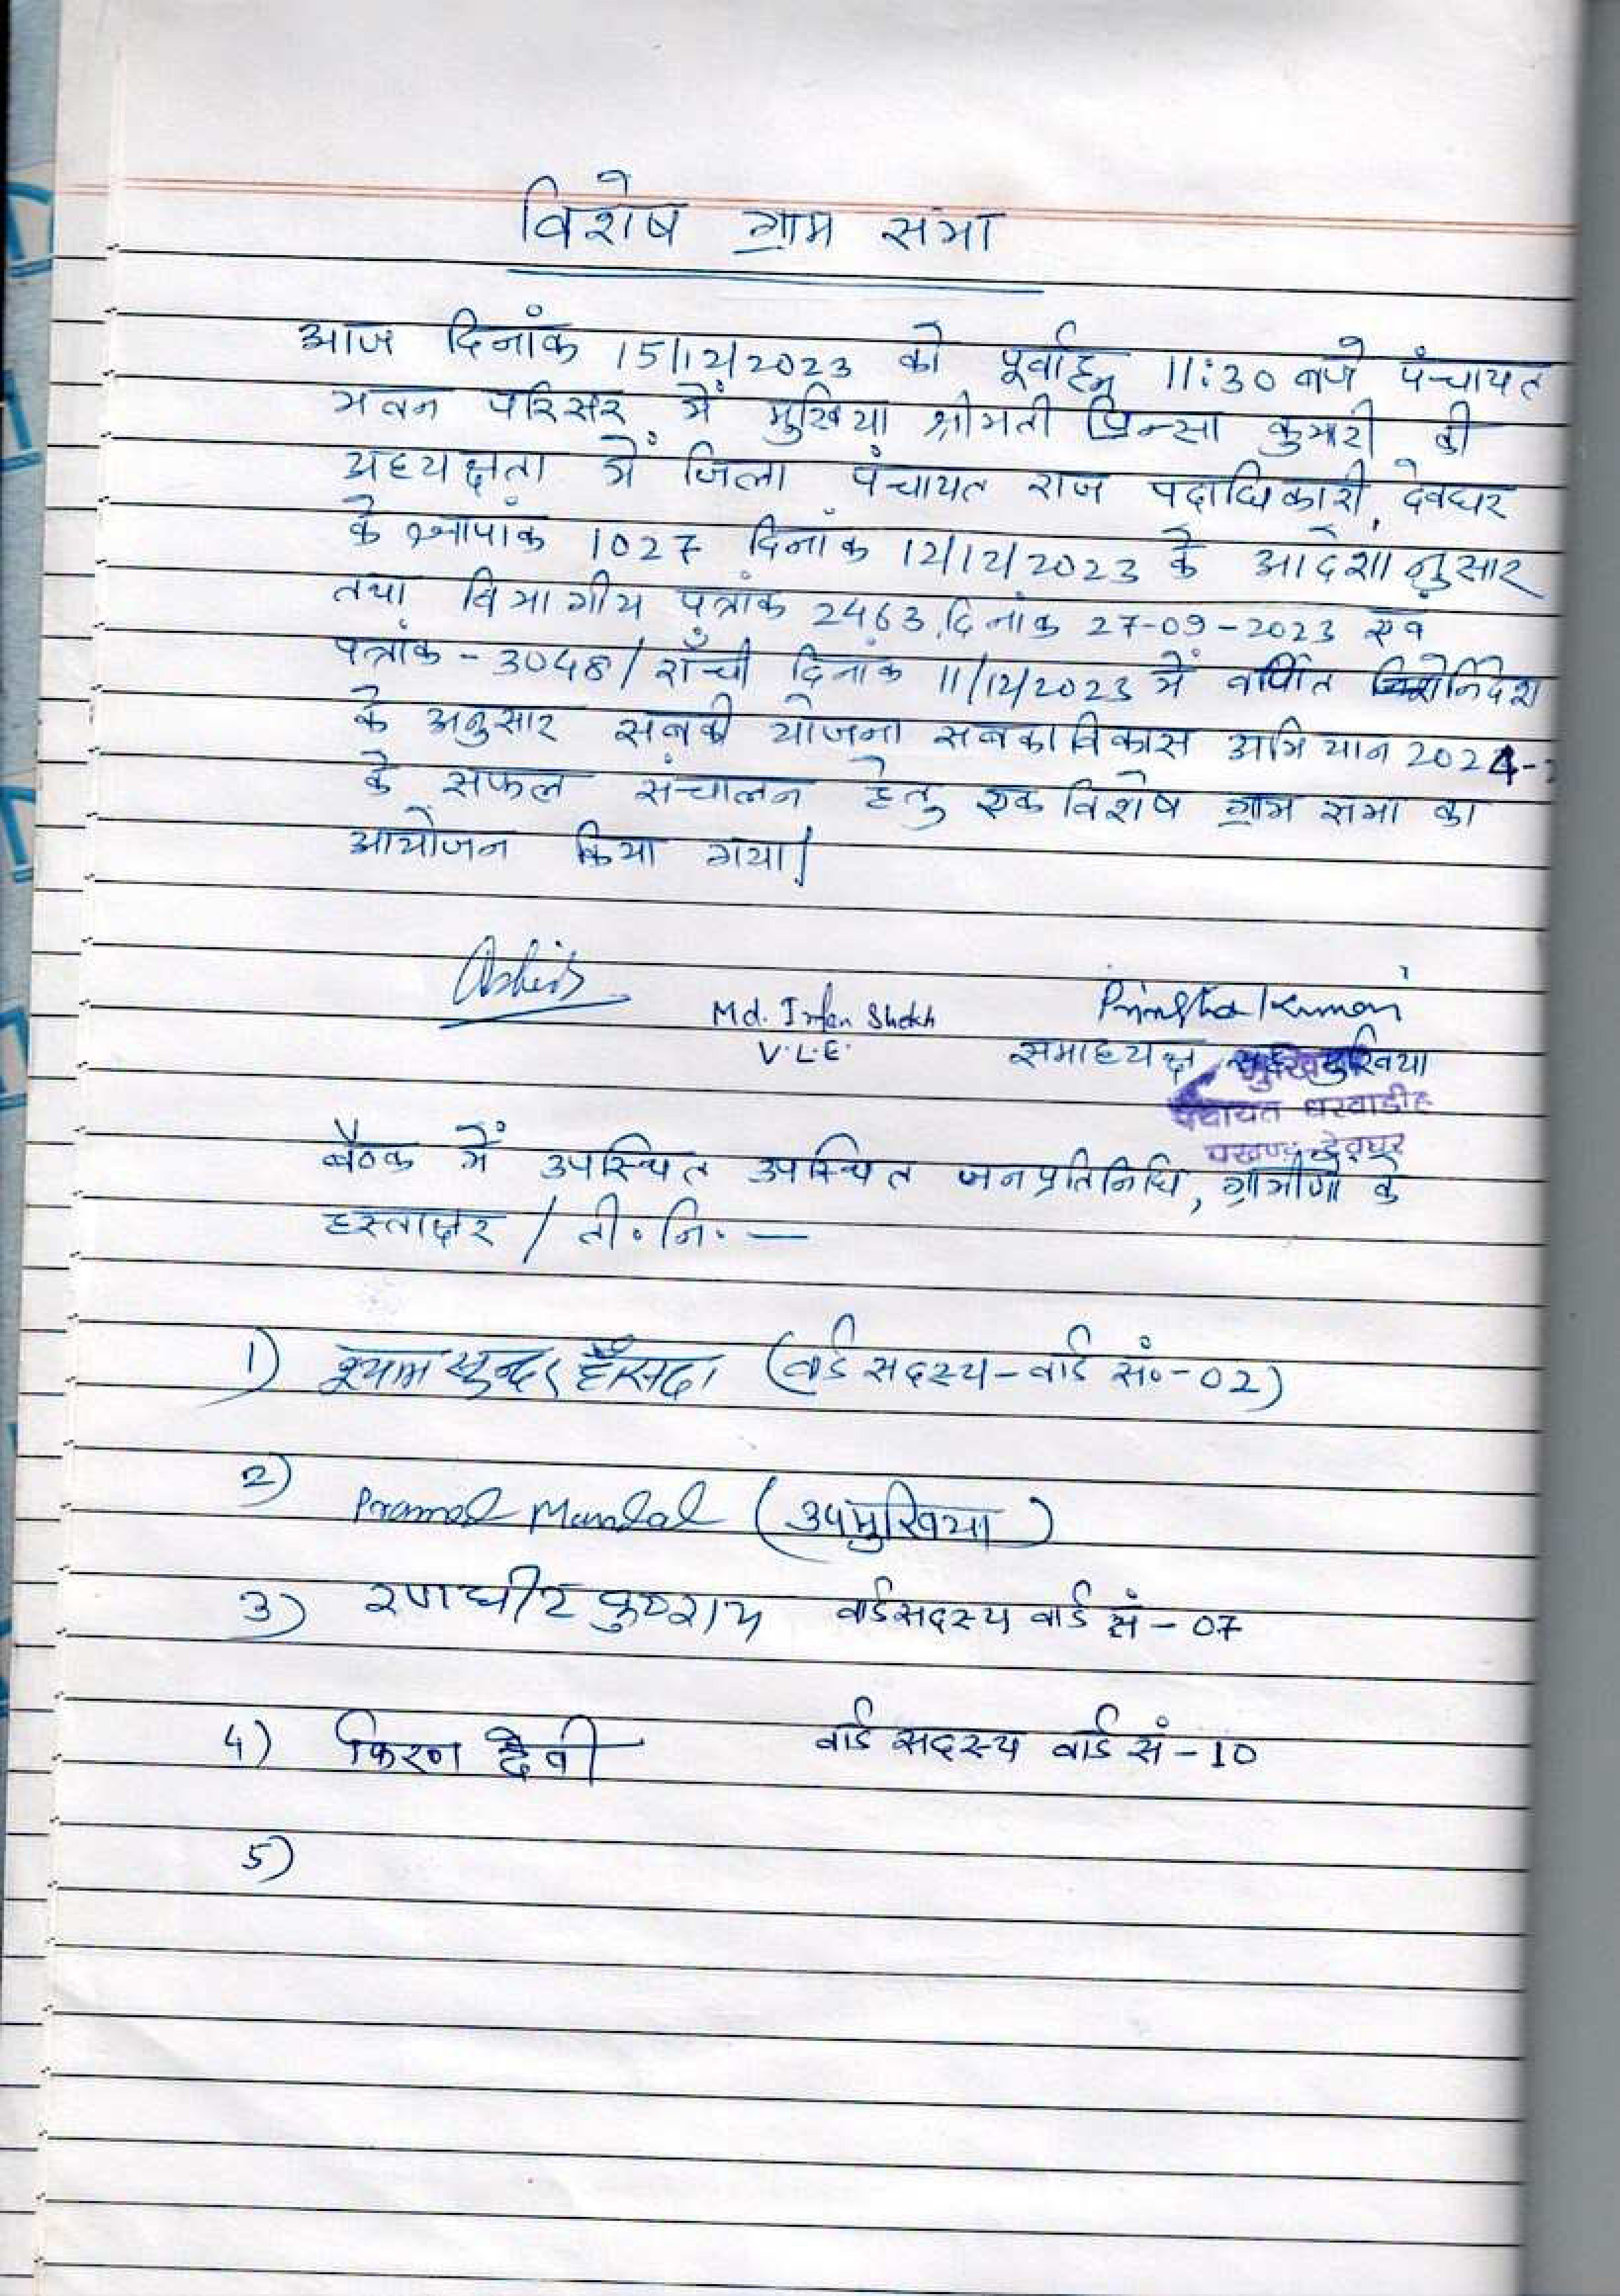 विशेष ग्राम सभा
आज दिनांक 15/12/2023 को पूर्वाह्न 11:30 बजे पंचायत
भवन परिसर में मुखिया श्रीमती प्रिन्सा कुमारी की
अध्यक्षता में जिला पंचायत राज पदाधिकारी, देवघर
के ज्ञापांक 1027 दिनांक 12/12/2023 के आदेशानुसार
तथा विभागीय पत्रांक 2463, दिनांक 27-09-2023 एवं
पत्रांक - 3048/राँची दिनांक 11/12/2023 में वर्णित निदेश
के अनुसार सबकी योजना सबका विकास अभियान 2024-
के सफल संचालन हेतु एक विशेष ग्राम सभा का
आयोजन किया गया।
Ashis
Md. Irfan Shekh
V.L.E.
Kumari
सभाध्यक्ष सह मुखिया
मुखिया
पंचायत
प्रखण्ड देवघर
बैठक में उपस्थित उपस्थित जनप्रतिनिधि, ग्रामीणों के
हस्ताक्षर / ती॰ नि॰ —
1) श्याम सुन्दर हाँसदा (वार्ड सदस्य - वार्ड सं॰-02)
2) Pramod Mandal (उपमुखिया)
3) रणधीर कु० राय वार्ड सदस्य वार्ड सं - 07
4) किरण देवी वार्ड सदस्य वार्ड सं - 10
5)